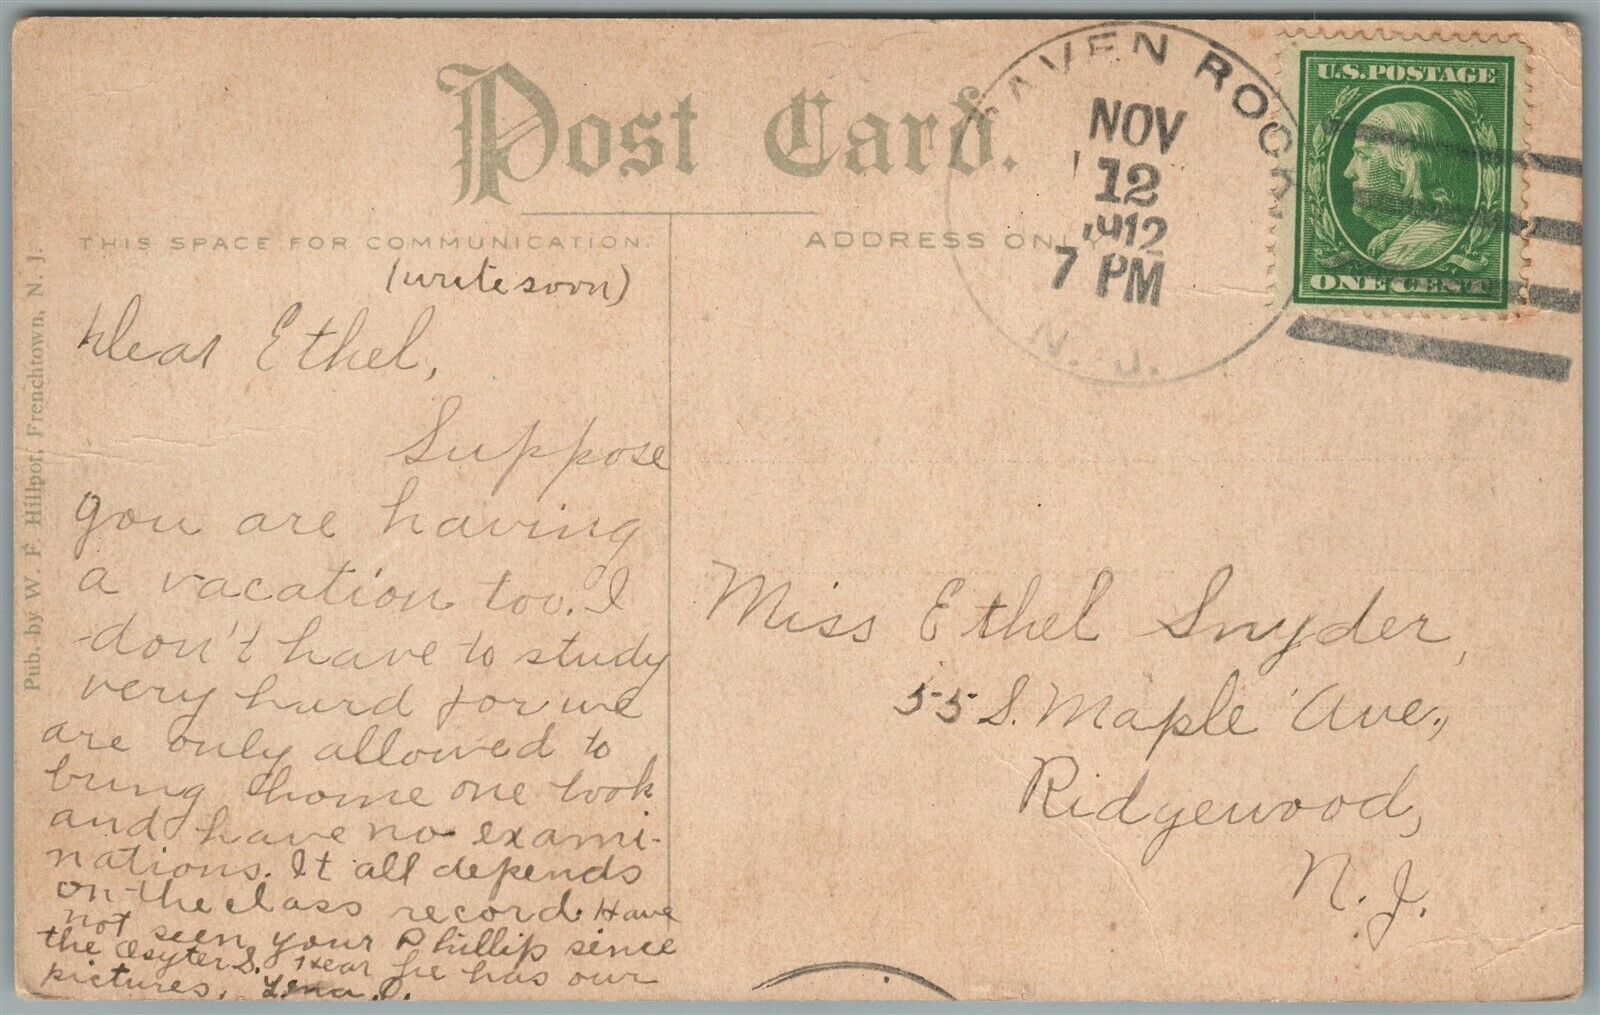 Post Card.
THIS SPACE FOR COMMUNICATION.
ADDRESS ONLY
RAVEN ROCK
NOV
12
1912
7 PM
N. J.
U.S. POSTAGE
ONE CENT
Pub. by W. F. Hillpot, Frenchtown, N. J.
(write soon)
Dear Ethel,
Suppose
you are having
a vacation too. I
don't have to study
very hard for we
are only allowed to
bring home one book
and have no exami-
nations. It all depends
on the class record. Have
not seen your Phillip since
the Osyter S. I hear he has our
pictures. Lena O.
Miss Ethel Snyder,
55 S. Maple Ave.,
Ridgewood,
N. J.